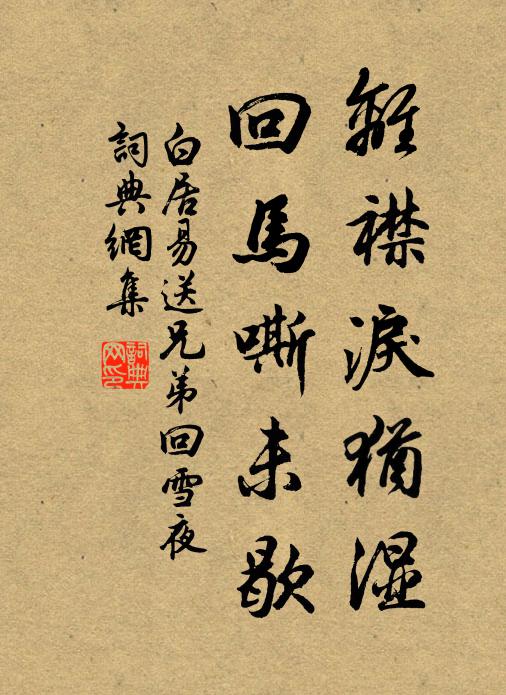 離襟淚猶濕
回馬嘶未歇
白居易送兄弟回雪夜
詞典網集
詞典
网印